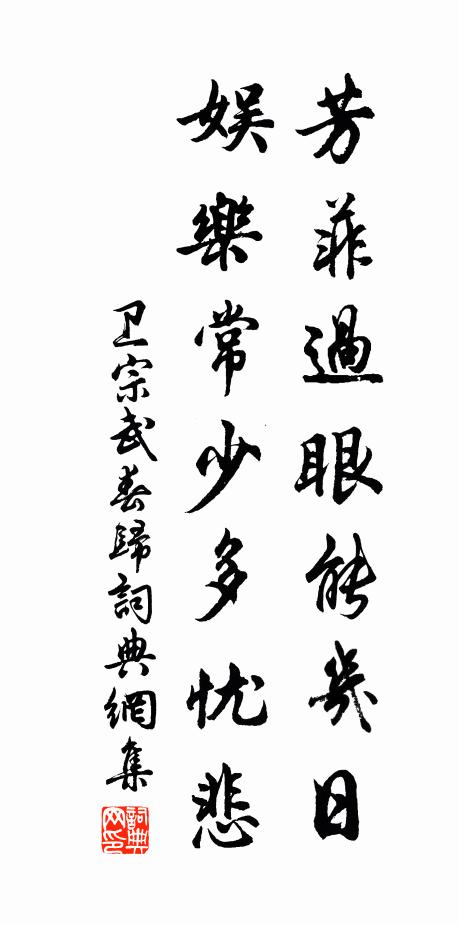 芳菲過眼能幾日
娱樂常少多忧悲
卫宗武春歸詞典網集
詞典网印